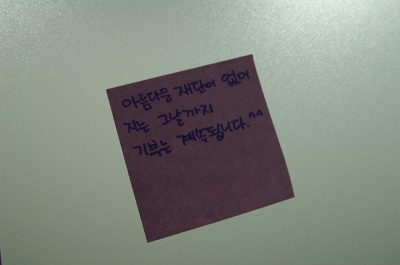 아름다음 재단이 없어
지는 그날까지
기부는 계속됩니다.^^